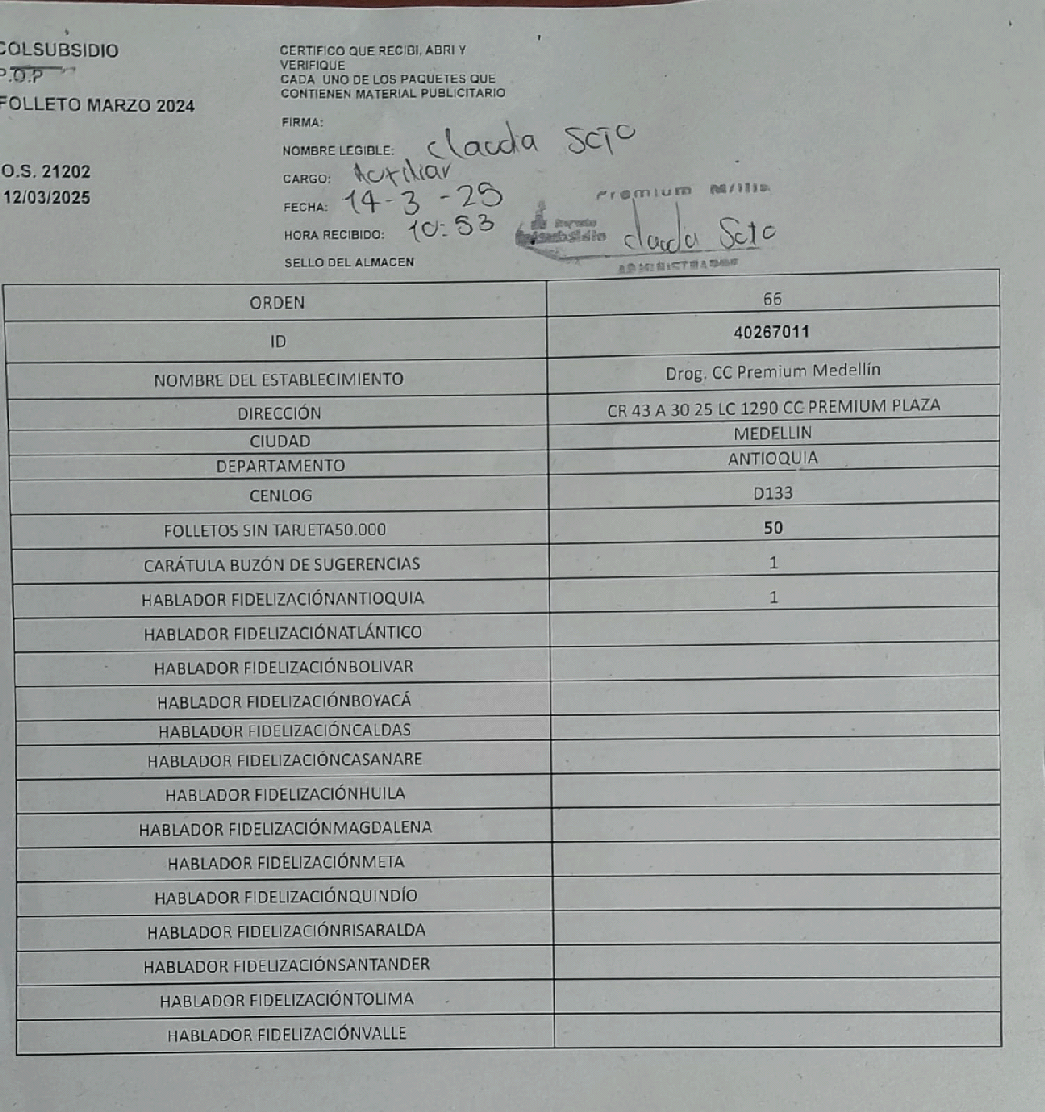 COLSUBSIDIO
P.O.P
FOLLETO MARZO 2024
O.S. 21202
12/03/2025
CERTIFICO QUE RECIBI, ABRI Y
VERIFIQUE
CADA UNO DE LOS PAQUETES QUE
CONTIENEN MATERIAL PUBLICITARIO
FIRMA:
NOMBRE LEGIBLE: Claudia Soto
CARGO: Auxiliar
FECHA: 14-3-25
HORA RECIBIDO: 10:53
SELLO DEL ALMACEN
Premium
Claudia Soto
ADMINISTRADOR
ORDEN 66
ID 40267011
NOMBRE DEL ESTABLECIMIENTO Drog. CC Premium Medellín
DIRECCIÓN CR 43 A 30 25 LC 1290 CC PREMIUM PLAZA
CIUDAD MEDELLIN
DEPARTAMENTO ANTIOQUIA
CENLOG D133
FOLLETOS SIN TARJETA50.000 50
CARÁTULA BUZÓN DE SUGERENCIAS 1
HABLADOR FIDELIZACIÓNANTIOQUIA 1
HABLADOR FIDELIZACIÓNATLÁNTICO
HABLADOR FIDELIZACIÓNBOLIVAR
HABLADOR FIDELIZACIÓNBOYACÁ
HABLADOR FIDELIZACIÓNCALDAS
HABLADOR FIDELIZACIÓNCASANARE
HABLADOR FIDELIZACIÓNHUILA
HABLADOR FIDELIZACIÓNMAGDALENA
HABLADOR FIDELIZACIÓNMETA
HABLADOR FIDELIZACIÓNQUINDÍO
HABLADOR FIDELIZACIÓNRISARALDA
HABLADOR FIDELIZACIÓNSANTANDER
HABLADOR FIDELIZACIÓNTOLIMA
HABLADOR FIDELIZACIÓNVALLE